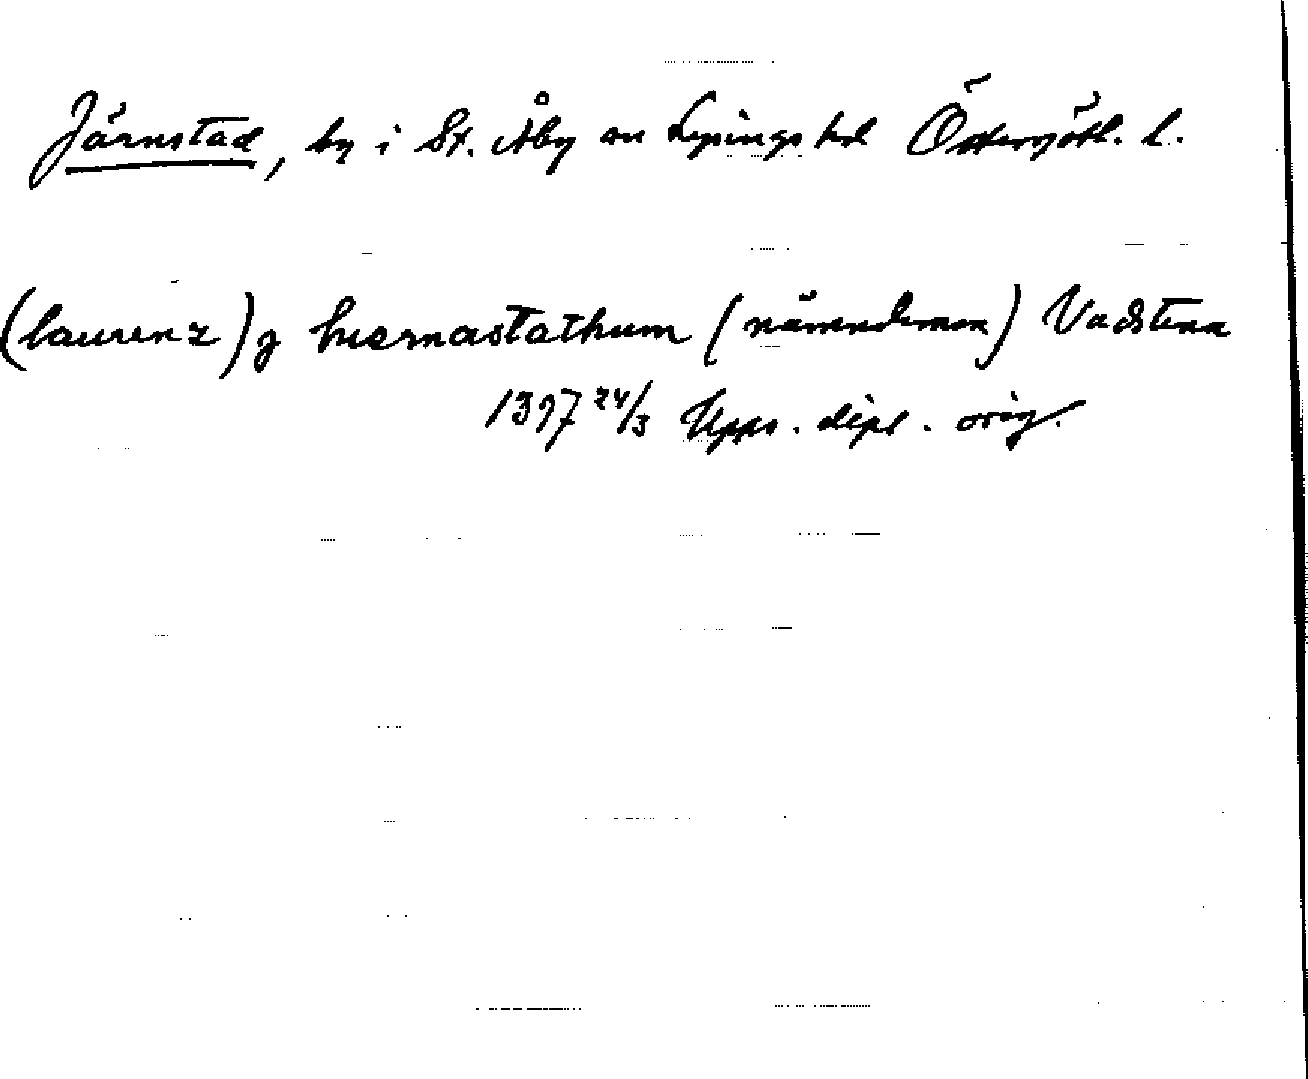 Järnstad, by i St. Åby sn Lysings hd Östergötl. l.
(laurenz) j hiernastathum (nämndeman) Vadstena
1397 24/3 Upps. dipl. orig.